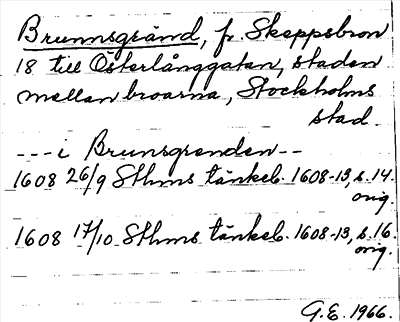 Brunnsgränd, fr. Skeppsbron
18 till Österlånggatan, staden
mellan broarna, Stockholms
stad
---i Brunsgrenden--
1608 26/9 Sthms tänkeb. 1608-13, s. 14.
orig.
1608 17/10 Sthms tänkeb. 1608-13, s. 16.
orig.
G.E. 1966.